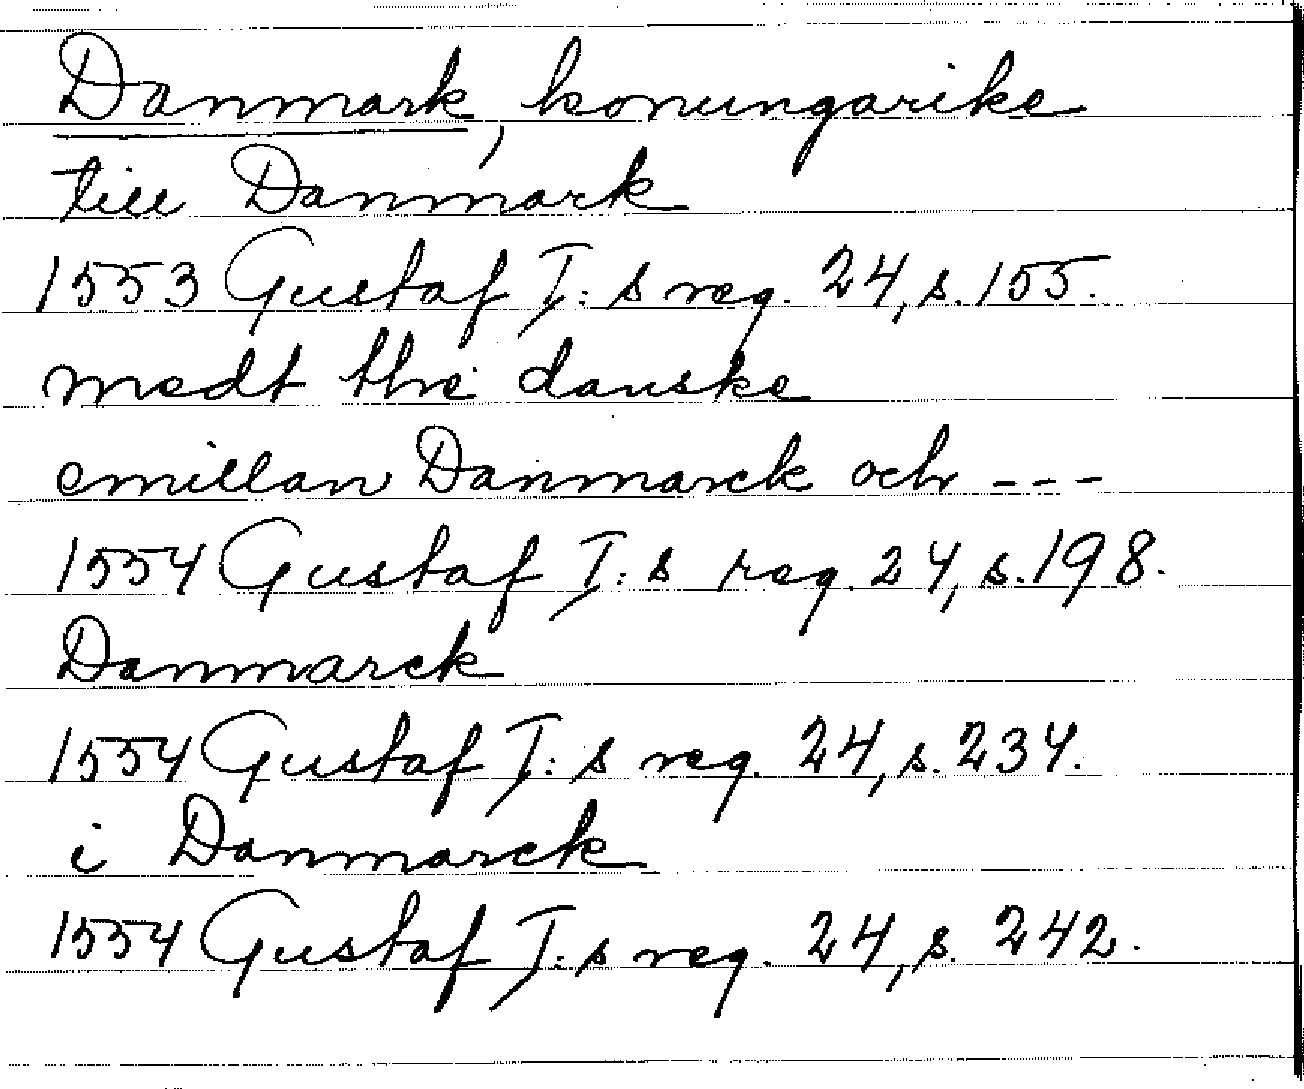 Danmark, konungarike
till Danmark
1553 Gustaf I:s reg. 24, s. 155.
medt the danske
emillan Danmarck och ---
1554 Gustaf I:s reg. 24, s. 198.
Danmarck
1554 Gustaf I:s reg. 24, s. 234.
i Danmarck
1554 Gustaf I:s reg. 24, s. 242.